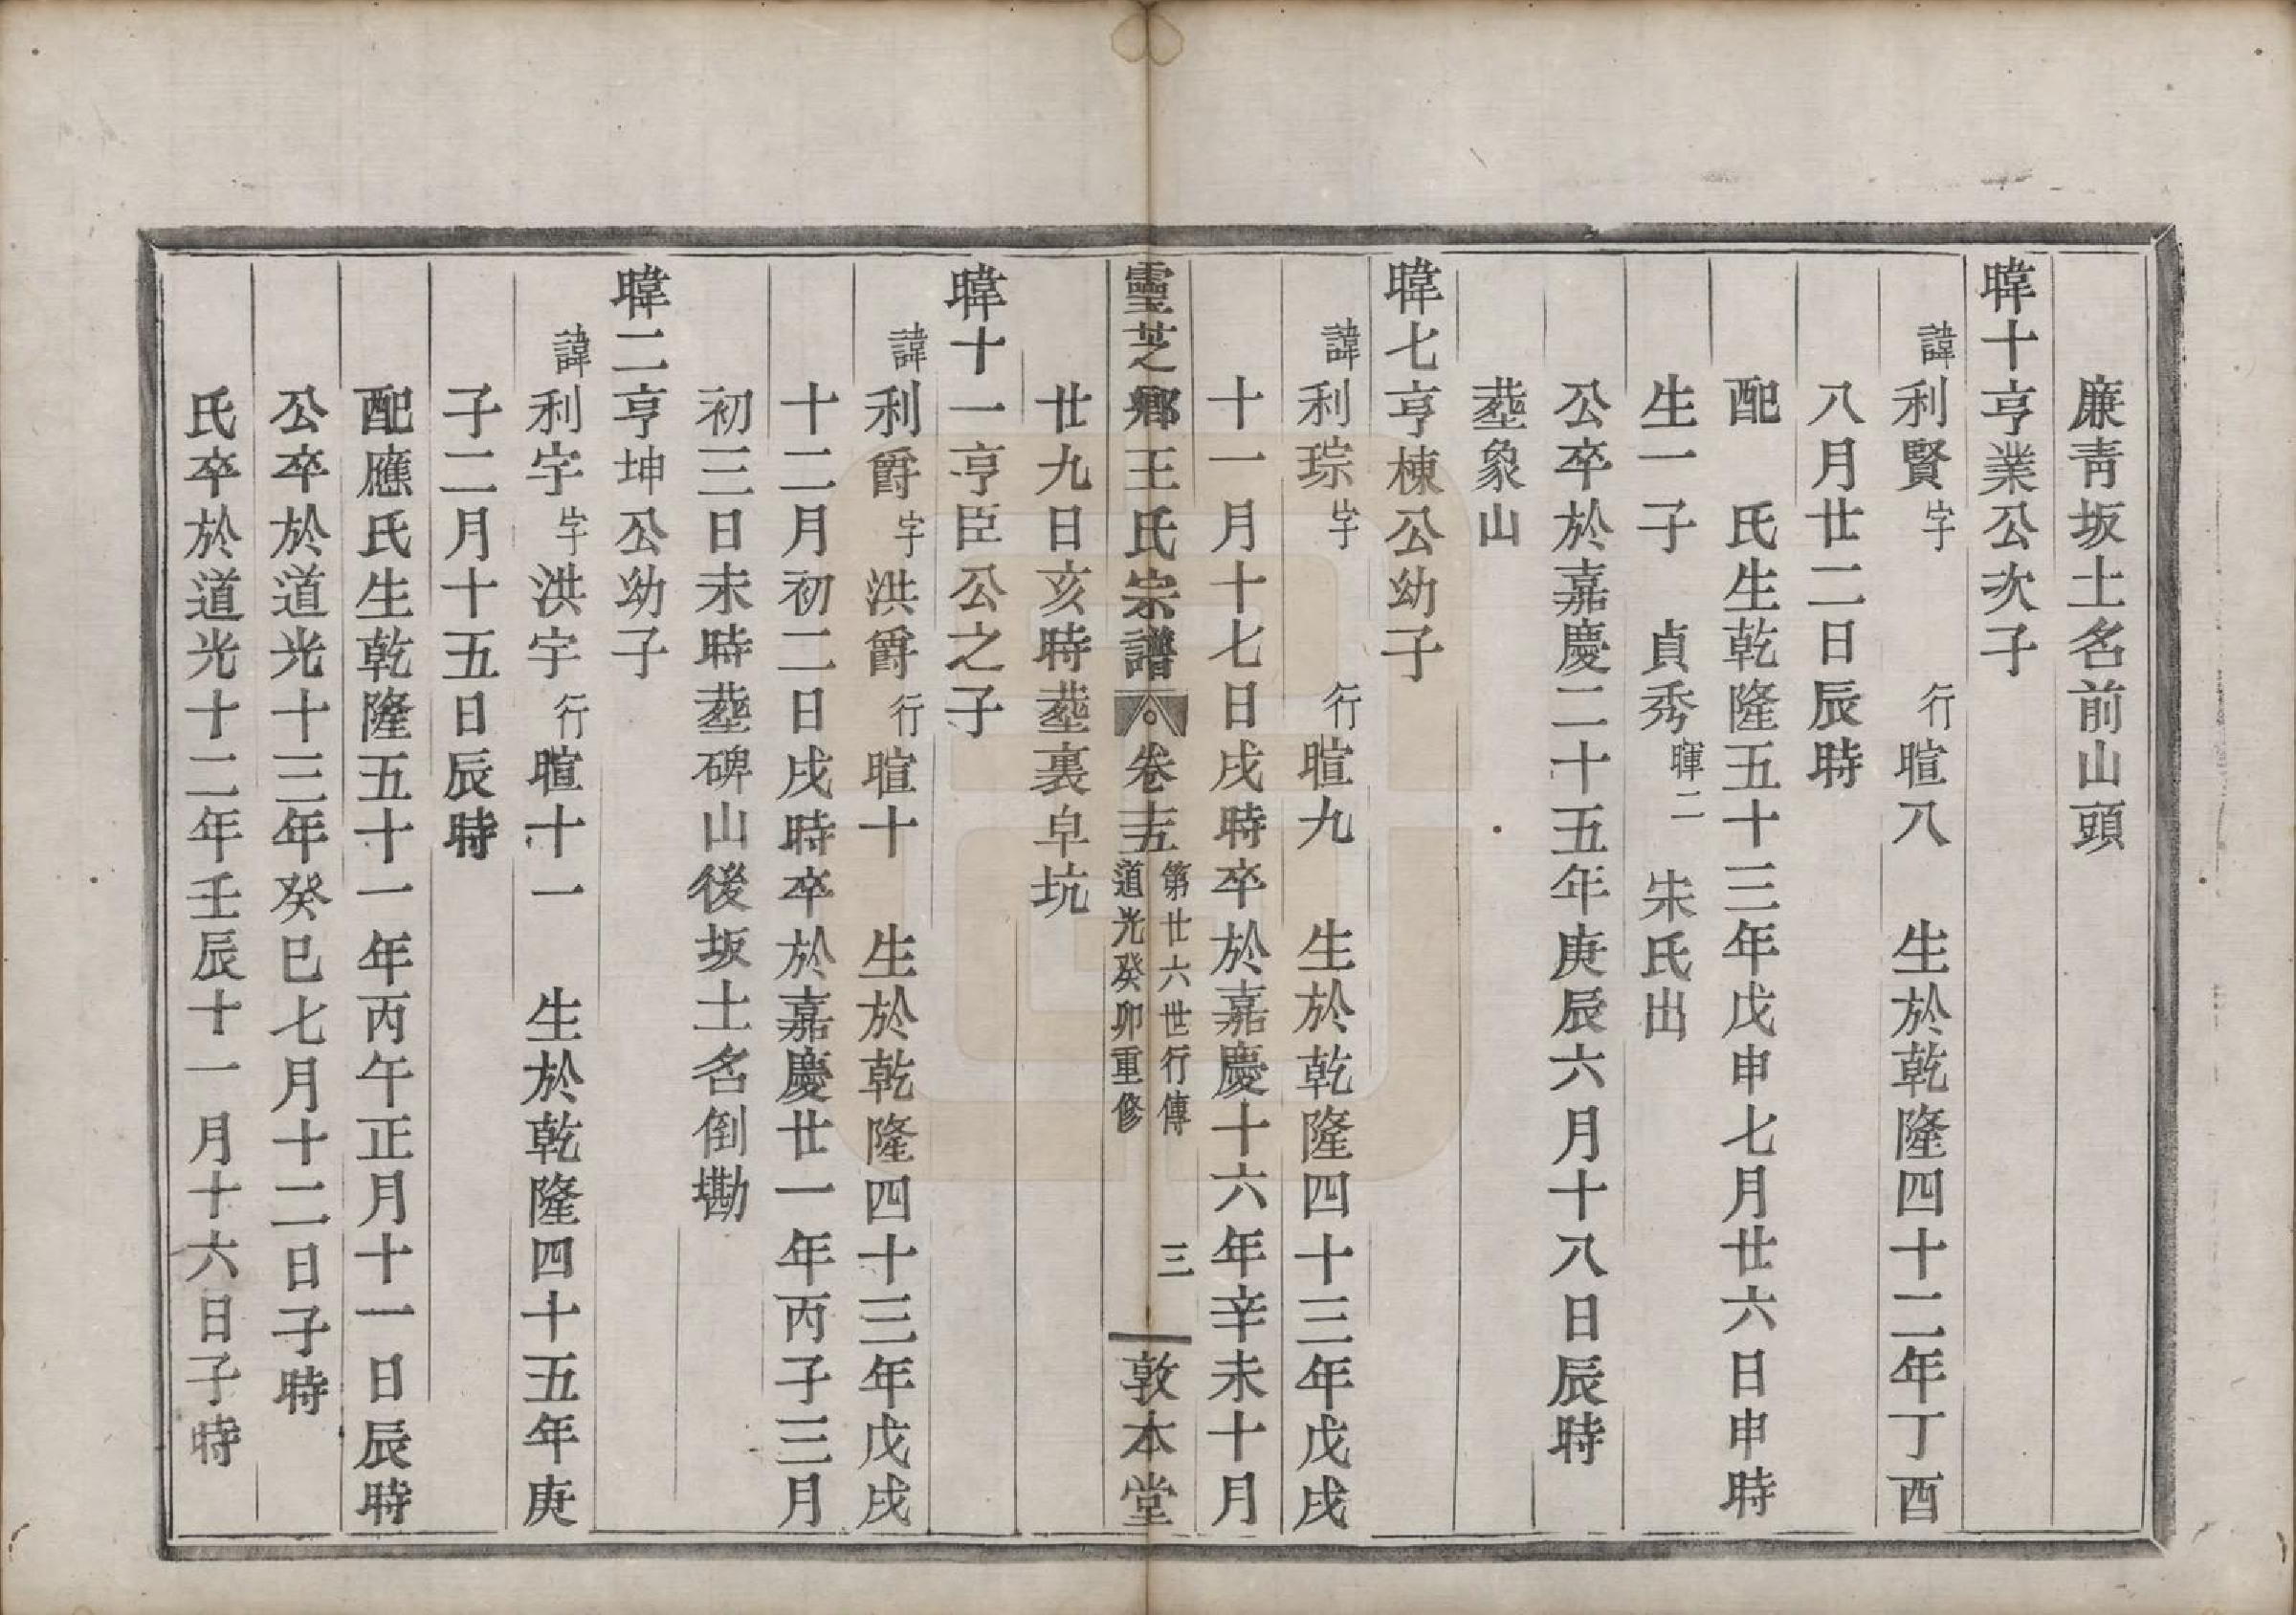 廉靑坂土名前山頭
暐十亨業公次子
諱利賢字 行暄八 生於乾隆四十二年丁酉
八月廿二日辰時
配 氏生乾隆五十三年戊申七月廿六日申時
生一子 貞秀暉二 朱氏出
公卒於嘉慶二十五年庚辰六月十八日辰時
塟象山
暐七亨棟公幼子
諱利琮字 行暄九 生於乾隆四十三年戊戌
十一月十七日戌時卒於嘉慶十六年辛未十月
廿九日亥時塟裏皁坑
靈芝鄉王氏宗譜 卷十五 第廿六世行傳 道光癸卯重修 三 敦本堂
暐十一亨臣公之子
諱利爵字洪爵行暄十 生於乾隆四十三年戊戌
十二月初二日戌時卒於嘉慶廿一年丙子三月
初三日未時塟碑山後坂土名倒墈
暐二亨坤公幼子
諱利宇字洪宇行暄十一 生於乾隆四十五年庚
子二月十五日辰時
配應氏生乾隆五十一年丙午正月十一日辰時
公卒於道光十三年癸巳七月十二日子時
氏卒於道光十二年壬辰十一月十六日子時